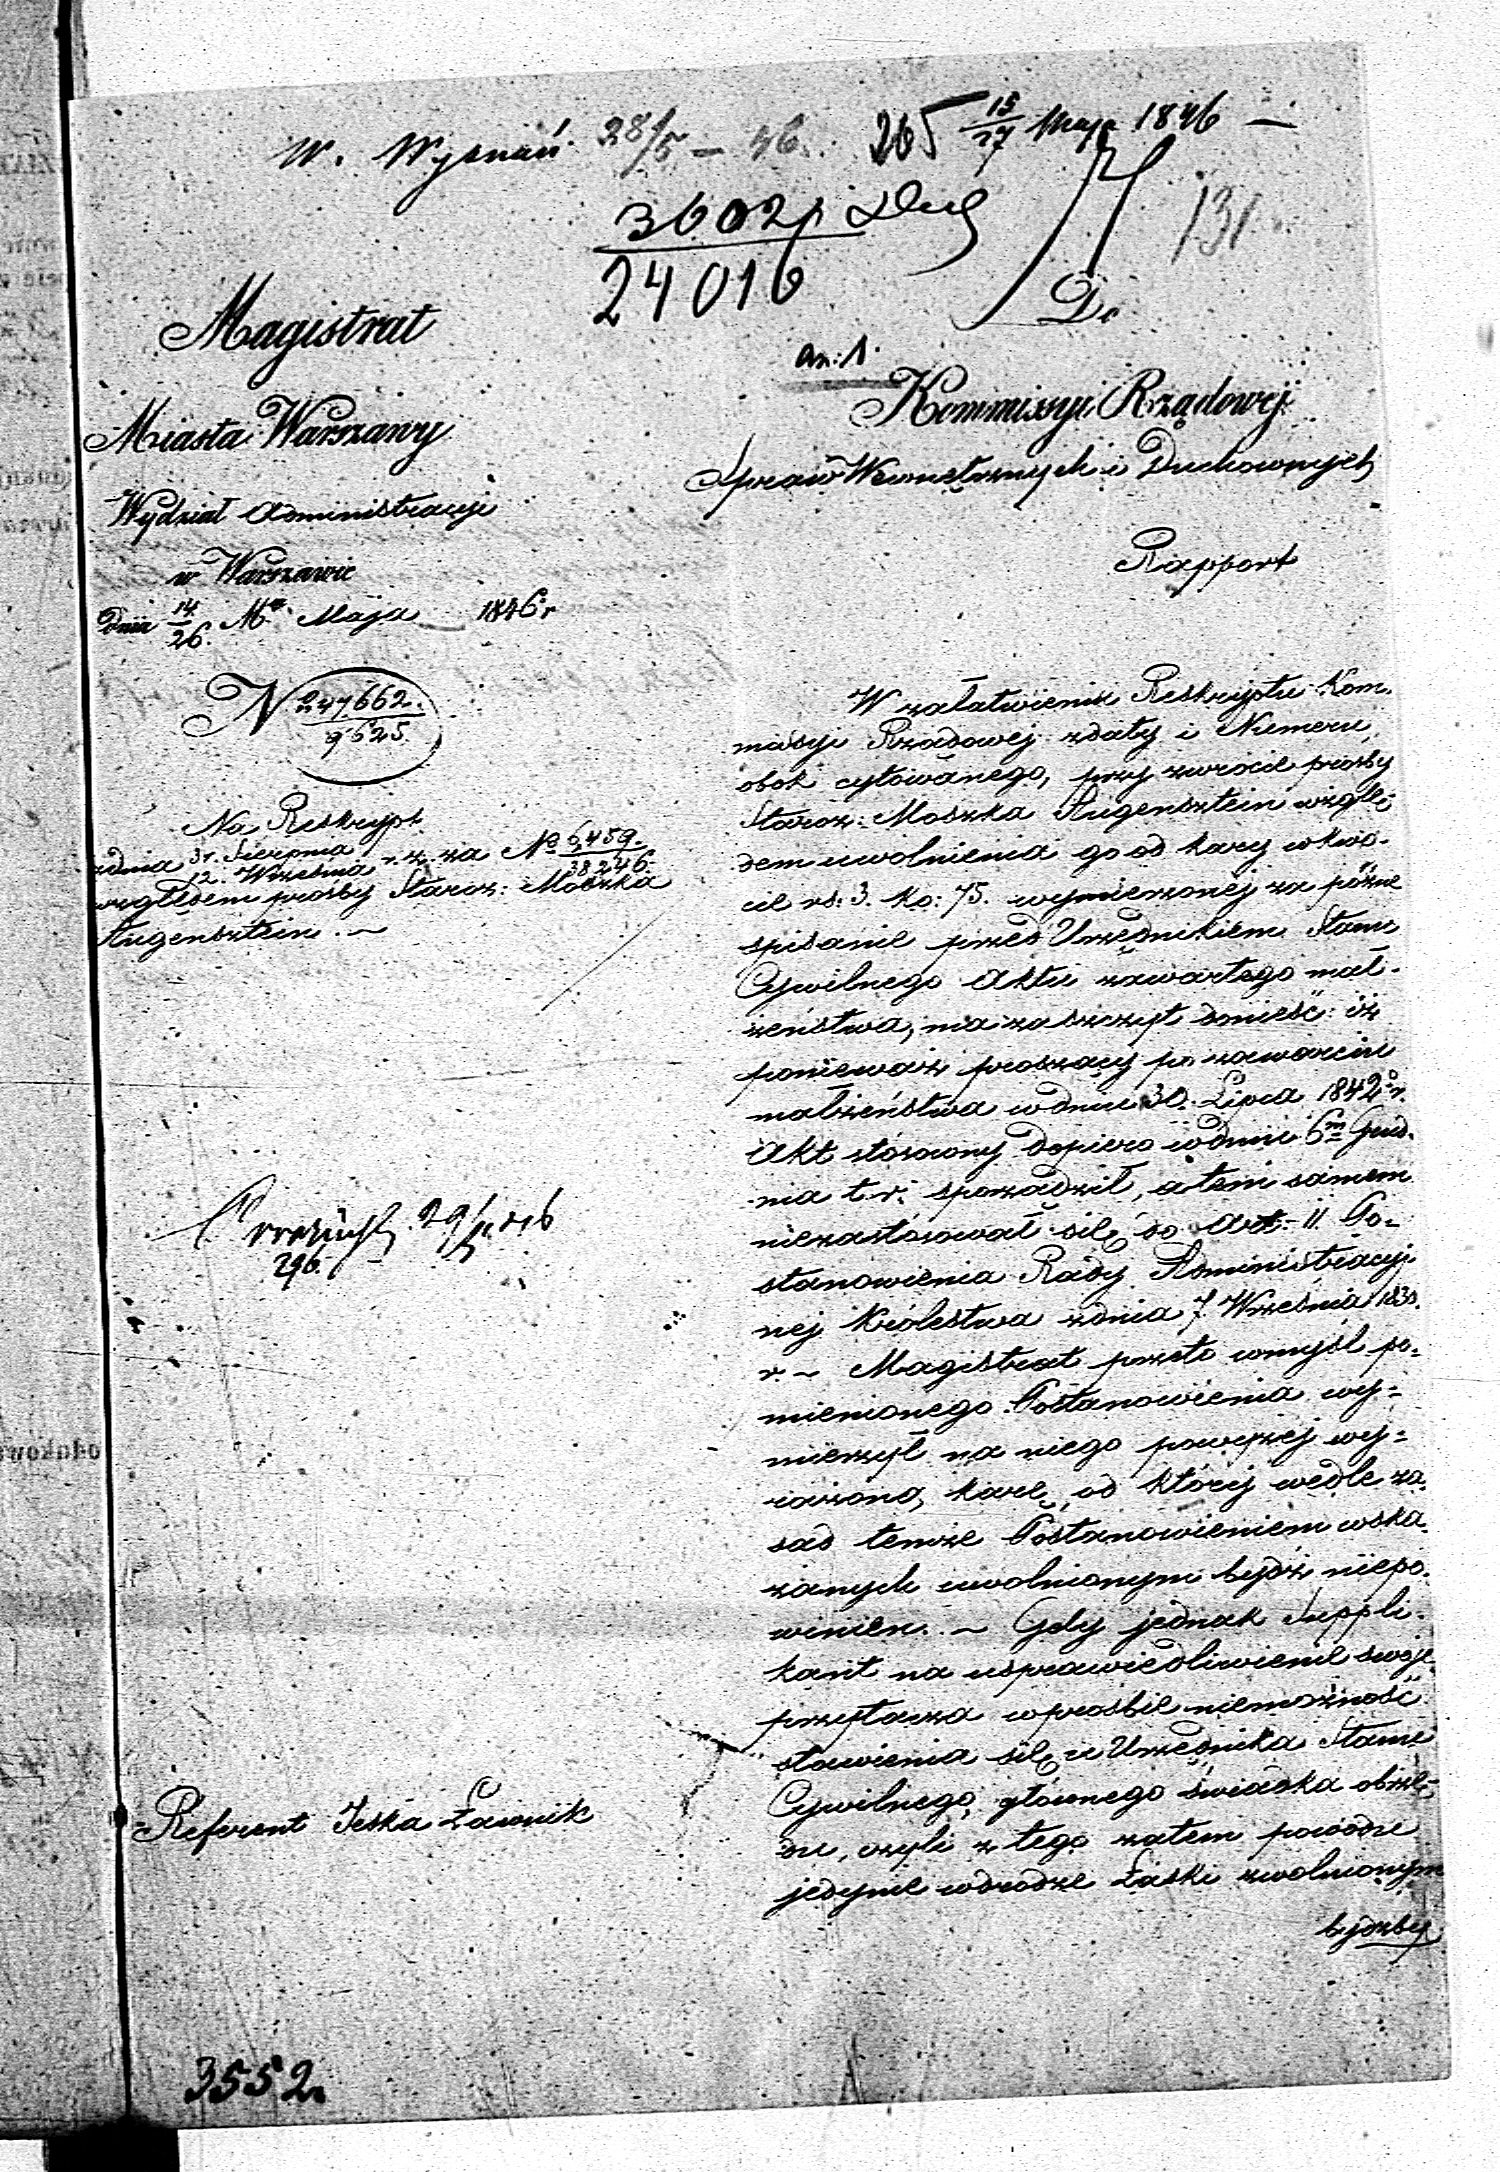 W. Wyznań 28/5 – 46. 265 15/27 Maja 1846 –
36021 Duch
24016
131
Do
an: 1.
Magistrat
Miasta Warszawy
Wydział Administracyi
w Warszawie
Dnia 14/26 Mca Maja 1846 r
No 47662.
9625.
Na Reskrypt
z dnia 31. Sierpnia / 12. Września r. z. za No 6,459. / 38246.
względem prośby Staroz: Moszka
Augensztein. –
29/5 46
296.
Referent Jeska Ławnik
3552.
Kommissyi Rządowej
Spraw Wewnętrznych i Duchownych
Rapport
W załatwieniu Reskryptu Kom,
missyi Rządowej z daty i Numeru
obok cytowanego, przy zwrocie prośby
Staroz: Moszka Augensztein wzglę-
dem uwolnienia go od kary w kwo-
cie rs: 3. ko: 75. wymierzonej za późne
spisanie przed Urzędnikiem Stanu
Cywilnego Aktu zawartego mał-
żeństwa, ma zaszczyt donieść: iż
ponieważ proszący po zawarciu
małżeństwa w dniu 30. Lipca 1842o r.
Akt stósowny dopiero w dniu 6m Grud-
nia t. r. sporządził, a tem samem
niezastósował się do Art: 11. Po-
stanowienia Rady Administracyj
nej Królestwa z dnia 7 Września 1830.
r. – Magistrat przeto w myśl po-
mienionego Postanowienia wy-
mierzył na niego powyżej wy-
rażoną karę, od której wedle za-
sad temże Postanowieniem wska-
zanych uwolnionym bydź niepo-
winien. – Gdy jednak Suppli-
kant na usprawiedliwienie swoje
przytacza w prośbie niemożność
stawienia się u Urzędnika Stanu
Cywilnego, głównego świadka obrzę-
du, czyli z tego zatem powodu
jedynie w drodze Łaski zwolnionym
bydźby